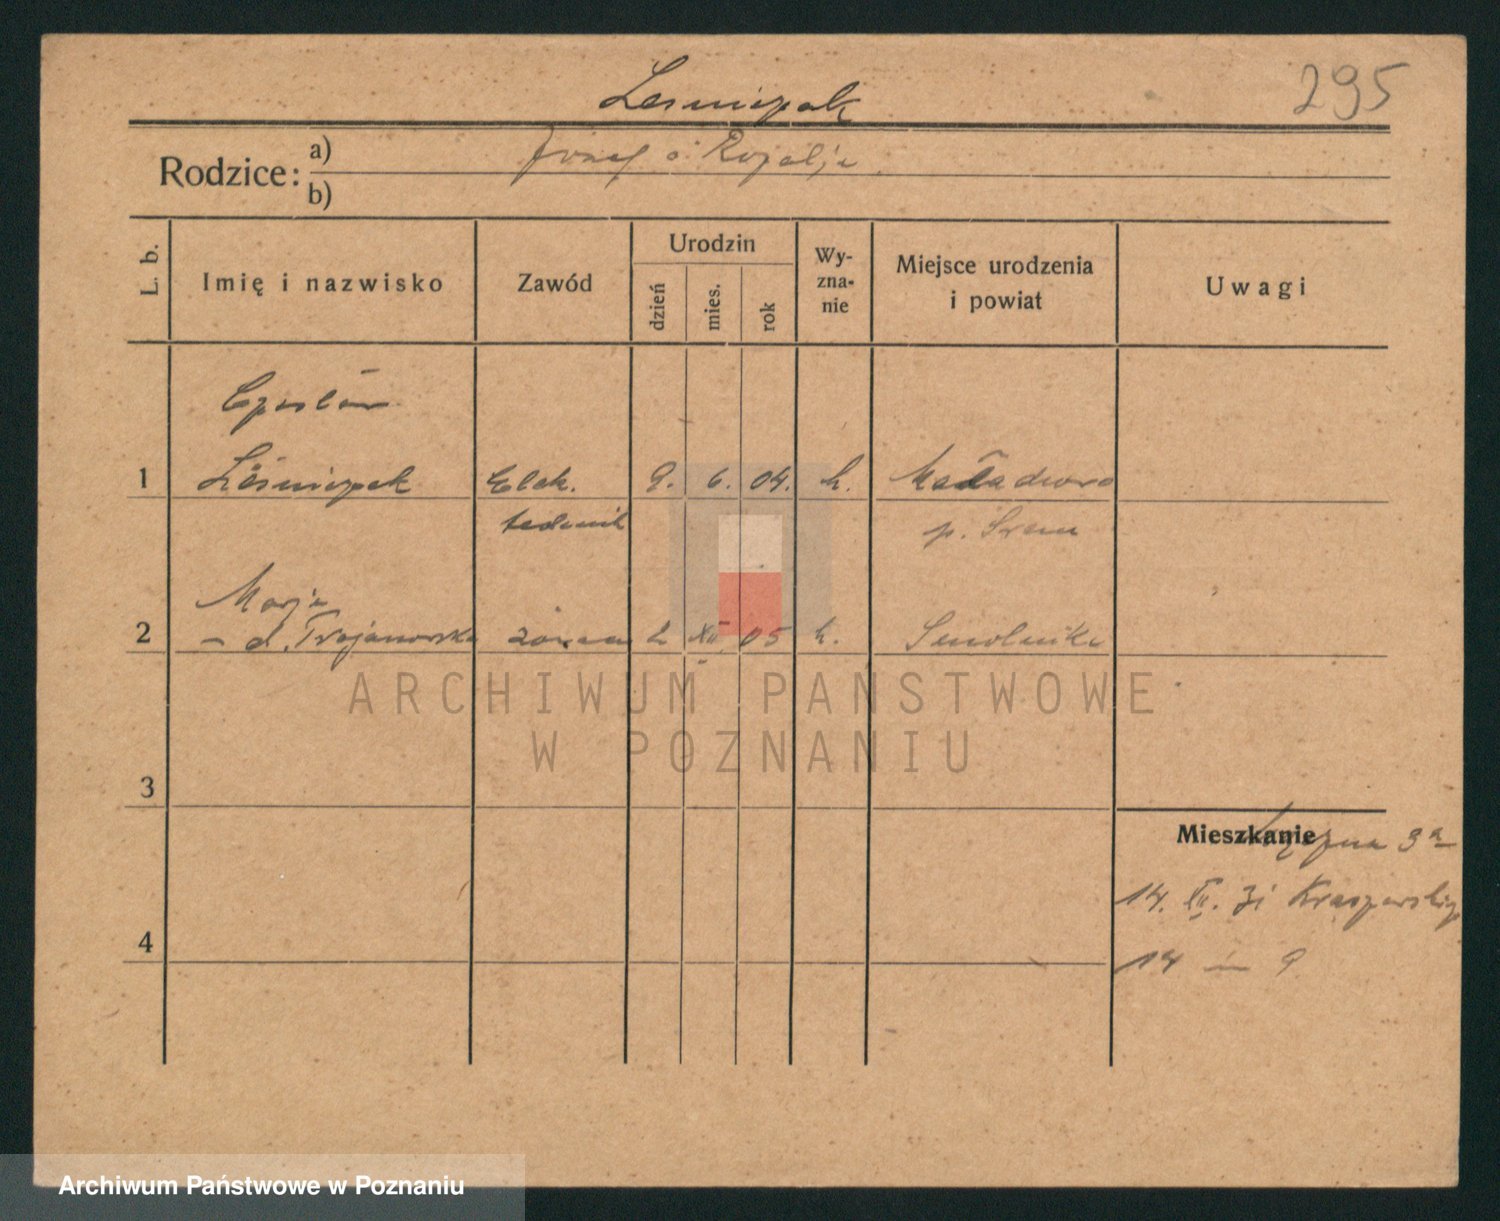 Leśniczak
295
Rodzice:
a) Józef i Rozalja
b)
L. b.
Imię i nazwisko
Zawód
Urodzin
dzień
mies.
rok
Wy-
zna-
nie
Miejsce urodzenia
i powiat
Uwagi
Czesław
1 Leśniczak Elek. 9. 6. 04. k.
technik p. Śrem
Marja
2 – d. Trojanowska żona 2 XII 05 k.
3
Mieszkanie 3a
14. XII. 31 Kraszewskiego
4
14 m 9
ARCHIWUM PAŃSTWOWE
W POZNANIU
Archiwum Państwowe w Poznaniu